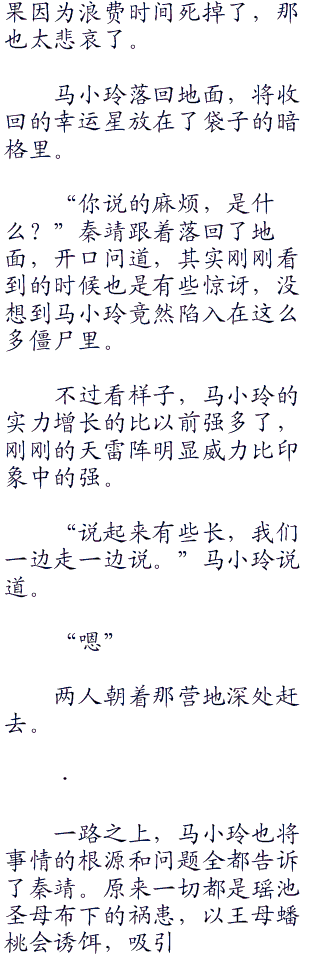 果因为浪费时间死掉了，那
也太悲哀了。
马小玲落回地面，将收
回的幸运星放在了袋子的暗
格里。
“你说的麻烦，是什
么？”秦靖跟着落回了地
面，开口问道，其实刚刚看
到的时候也是有些惊讶，没
想到马小玲竟然陷入在这么
多僵尸里。
不过看样子，马小玲的
实力增长的比以前强多了，
刚刚的天雷阵明显威力比印
象中的强。
“说起来有些长，我们
一边走一边说。”马小玲说
道。
“嗯”
两人朝着那营地深处赶
去。
.
一路之上，马小玲也将
事情的根源和问题全都告诉
了秦靖。原来一切都是瑶池
圣母布下的祸患，以王母蟠
桃会诱饵，吸引